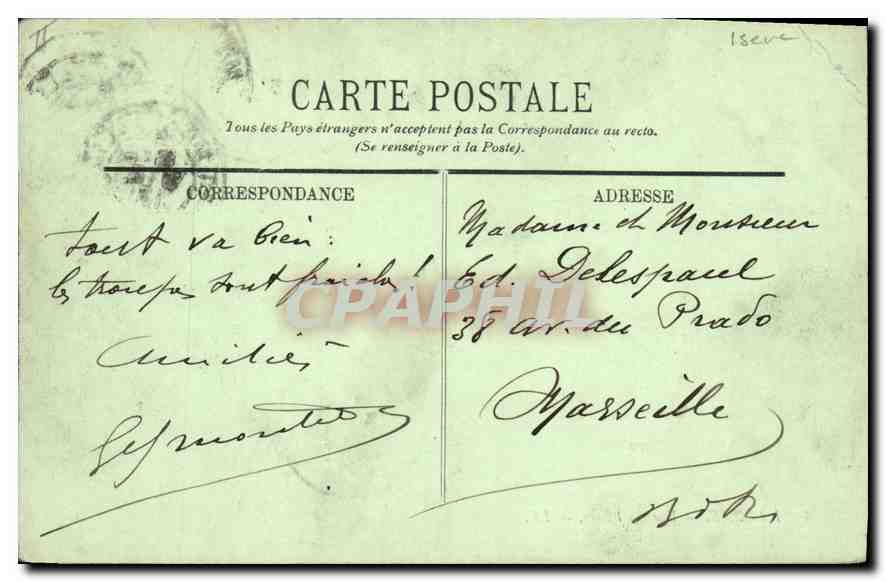 II
Isere
CARTE POSTALE
Tous les Pays étrangers n'acceptent pas la Correspondance au recto.
(Se renseigner à la Poste).
CORRESPONDANCE
tout va bien :
les troupes sont fraiches !
Amitiés
ADRESSE
Madame et Monsieur
Ed. Delespaul
38 av. du Prado
Marseille
CPAPHIL